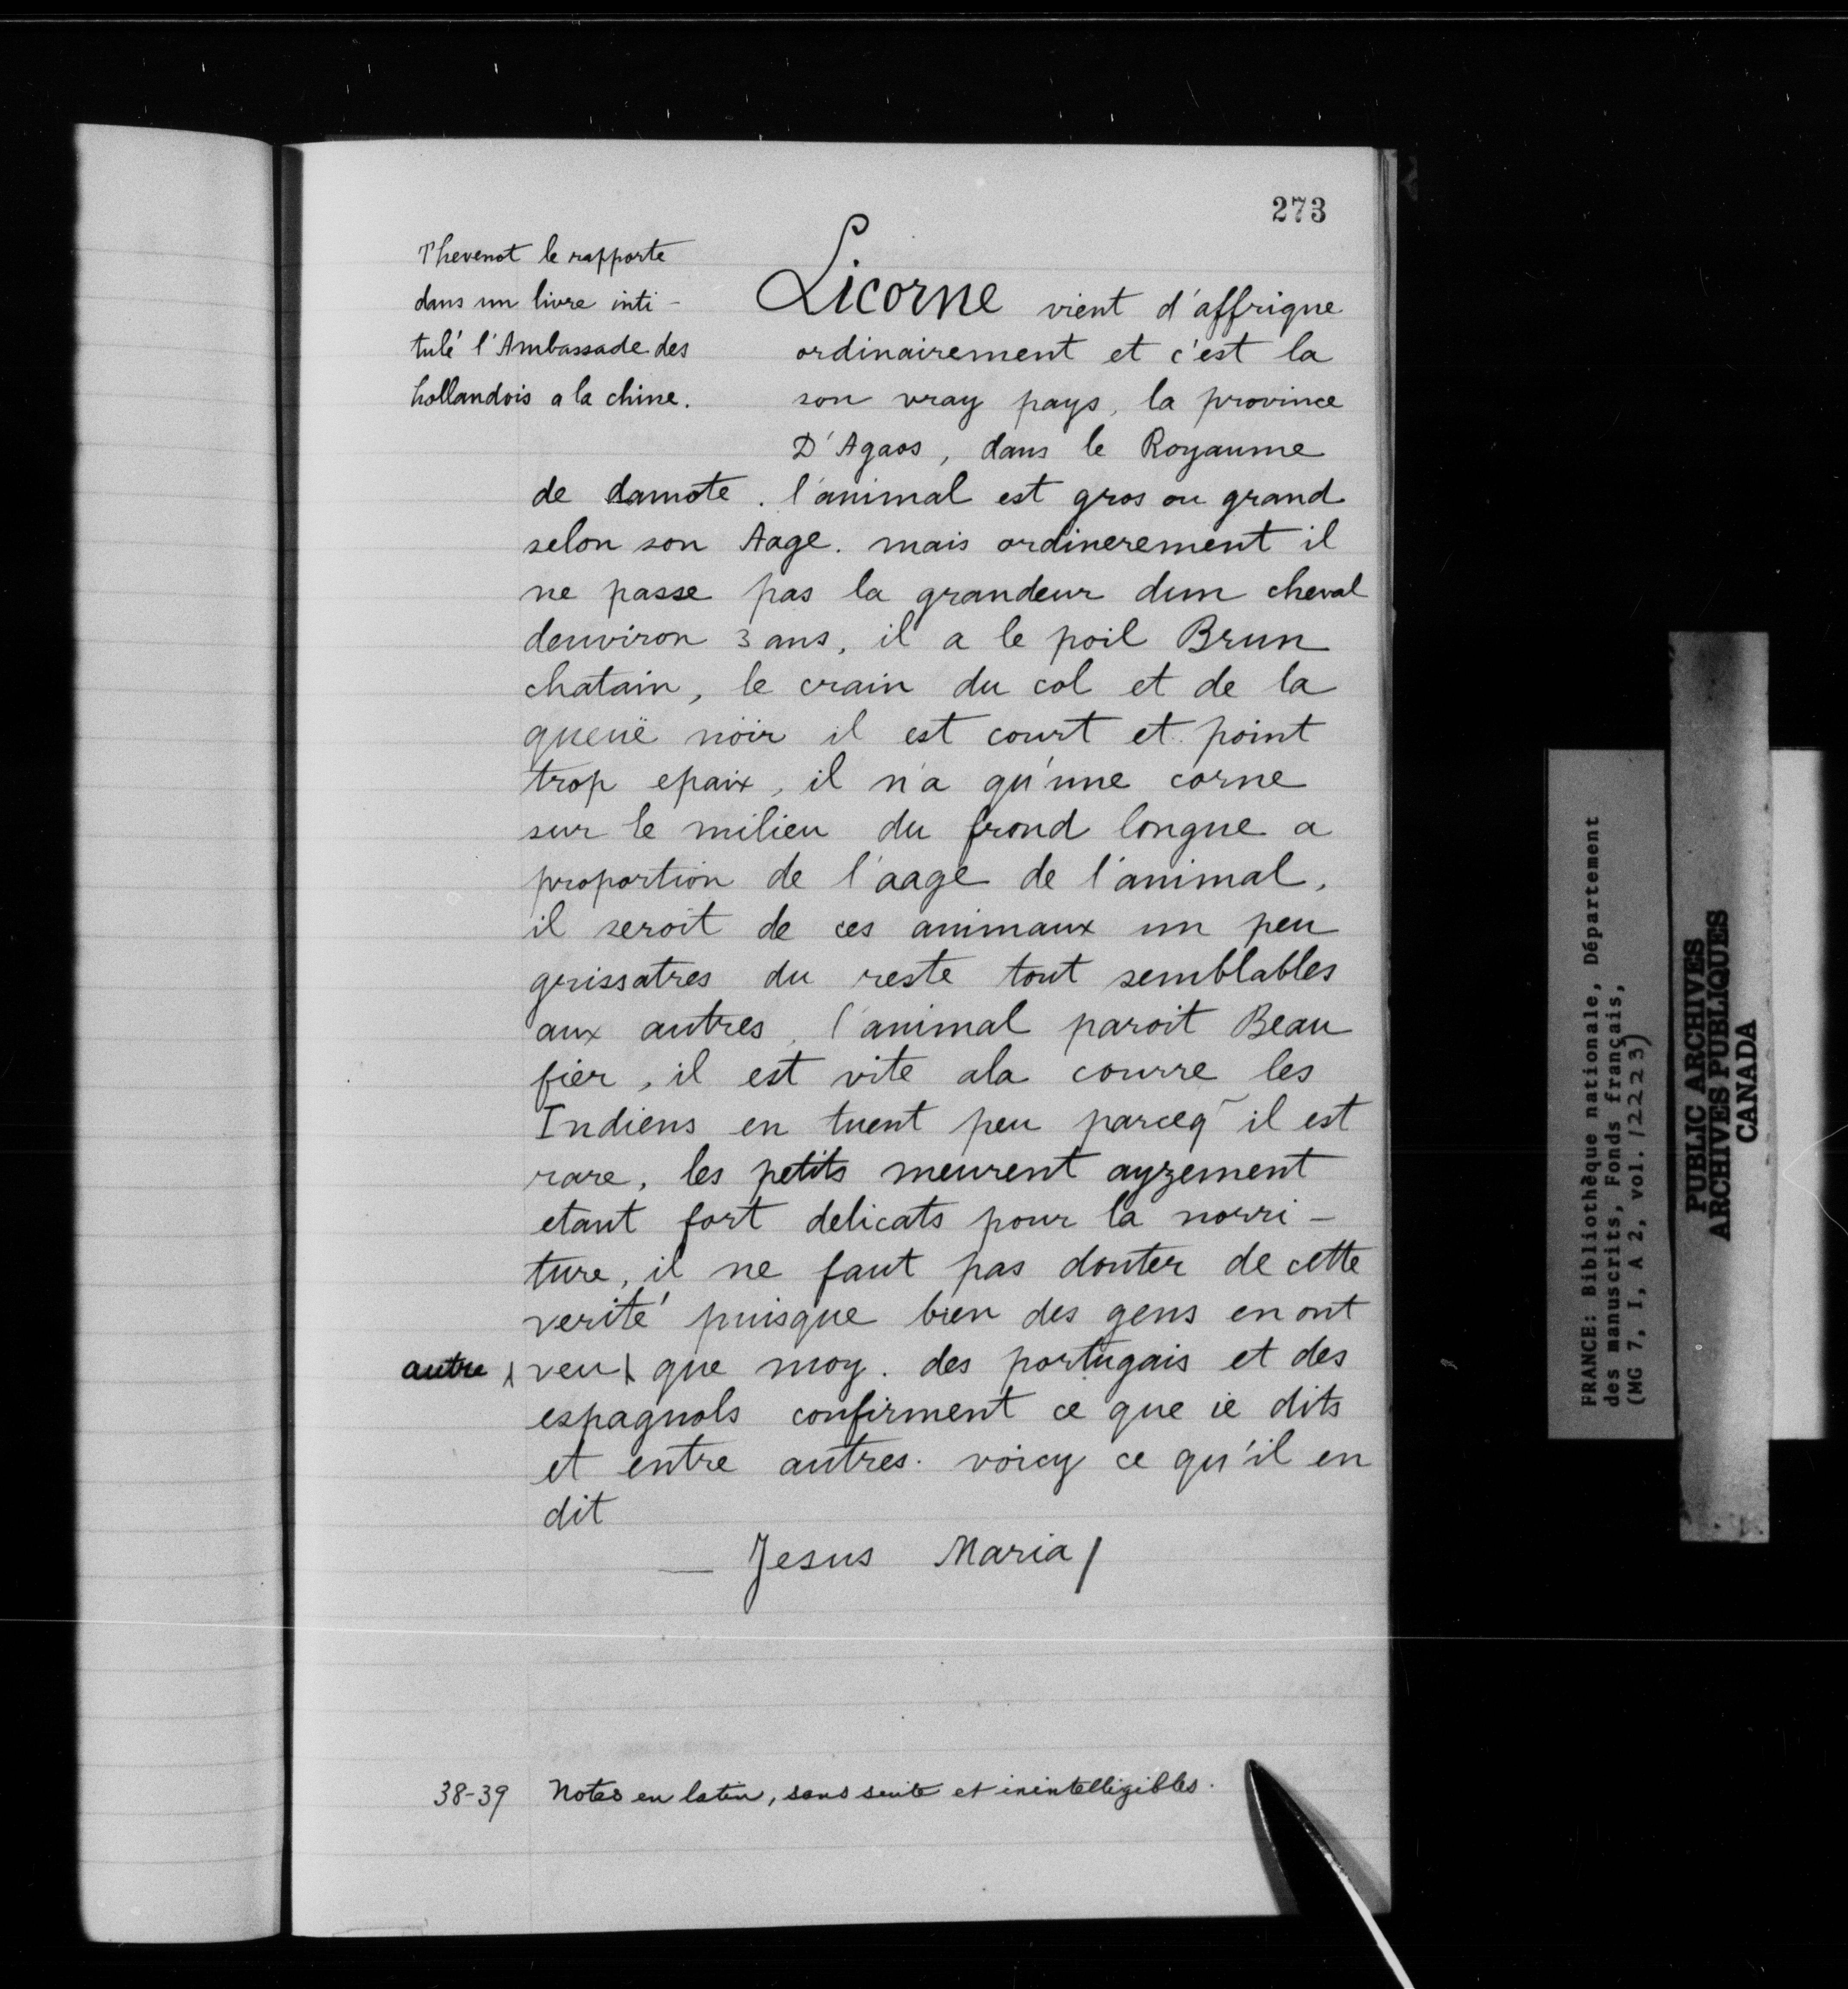 273
Thevenot le rapporte
dans un livre inti-
tulé l'Ambassade des
hollandois a la chine.
Licorne vient d'affrique
ordinairement et c'est la
son vray pays, la province
D'Agaos, dans le Royaume
de damote. l'animal est gros ou grand
selon son Aage. mais ordinerement il
ne passe pas la grandeur dun cheval
denviron 3 ans, il a le poil Brun
chatain, le crain du col et de la
queuë noir il est court et point
trop epaix, il n'a qu'une corne
sur le milieu du frond longue a
proportion de l'aage de l'animal,
il seroit de ces animaux un peu
grissatres du reste tout semblables
aux autres, l'animal paroit Beau
fier, il est vite ala courre les
Indiens en tuent peu parceq̃ il est
rare, les petits meurent ayzement
etant fort delicats pour la norri-
ture, il ne faut pas douter de cette
verité puisque bien des gens en ont
autre veu que moy. des portugais et des
espagnols confirment ce que ie dits
et entre autres. voicy ce qu'il en
dit
— Jesus Maria /
38-39 Notes en latin, sans suite et inintelligibles.
FRANCE: Bibliothèque nationale, Département
des manuscrits, Fonds français,
(MG 7, I, A 2, vol. 12223)
PUBLIC ARCHIVES
ARCHIVES PUBLIQUES
CANADA